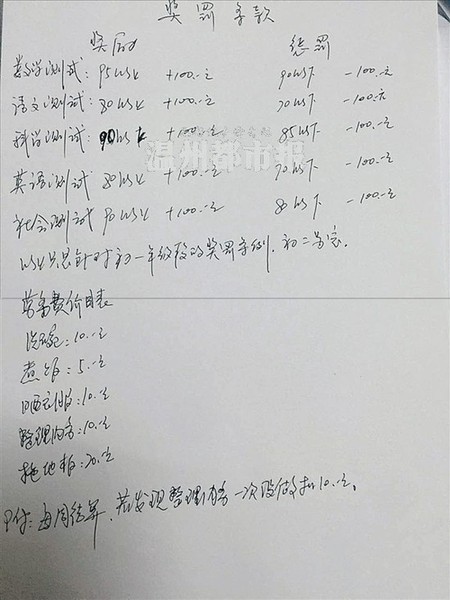 奖罚条款
奖励 惩罚
数学测试: 95以上 +100.元 90以下 -100.元
语文测试: 80以上 +100.元 70以下 -100.元
科学测试: 90以上 +100.元 85以下 -100.元
温州都市报
英语测试 80以上 +100.元 70以下 -100.元
社会测试 90以上 +100.元 80以下 -100.元
以上只是针对初一年级段的奖罚条例,初二另定.
劳务费价目表
洗碗:10.元
煮饭:5.元
晒衣服:10.元
整理内务:10.元
拖地板:20.元
附:每周结算,若发现整理内务一次没做扣10.元。